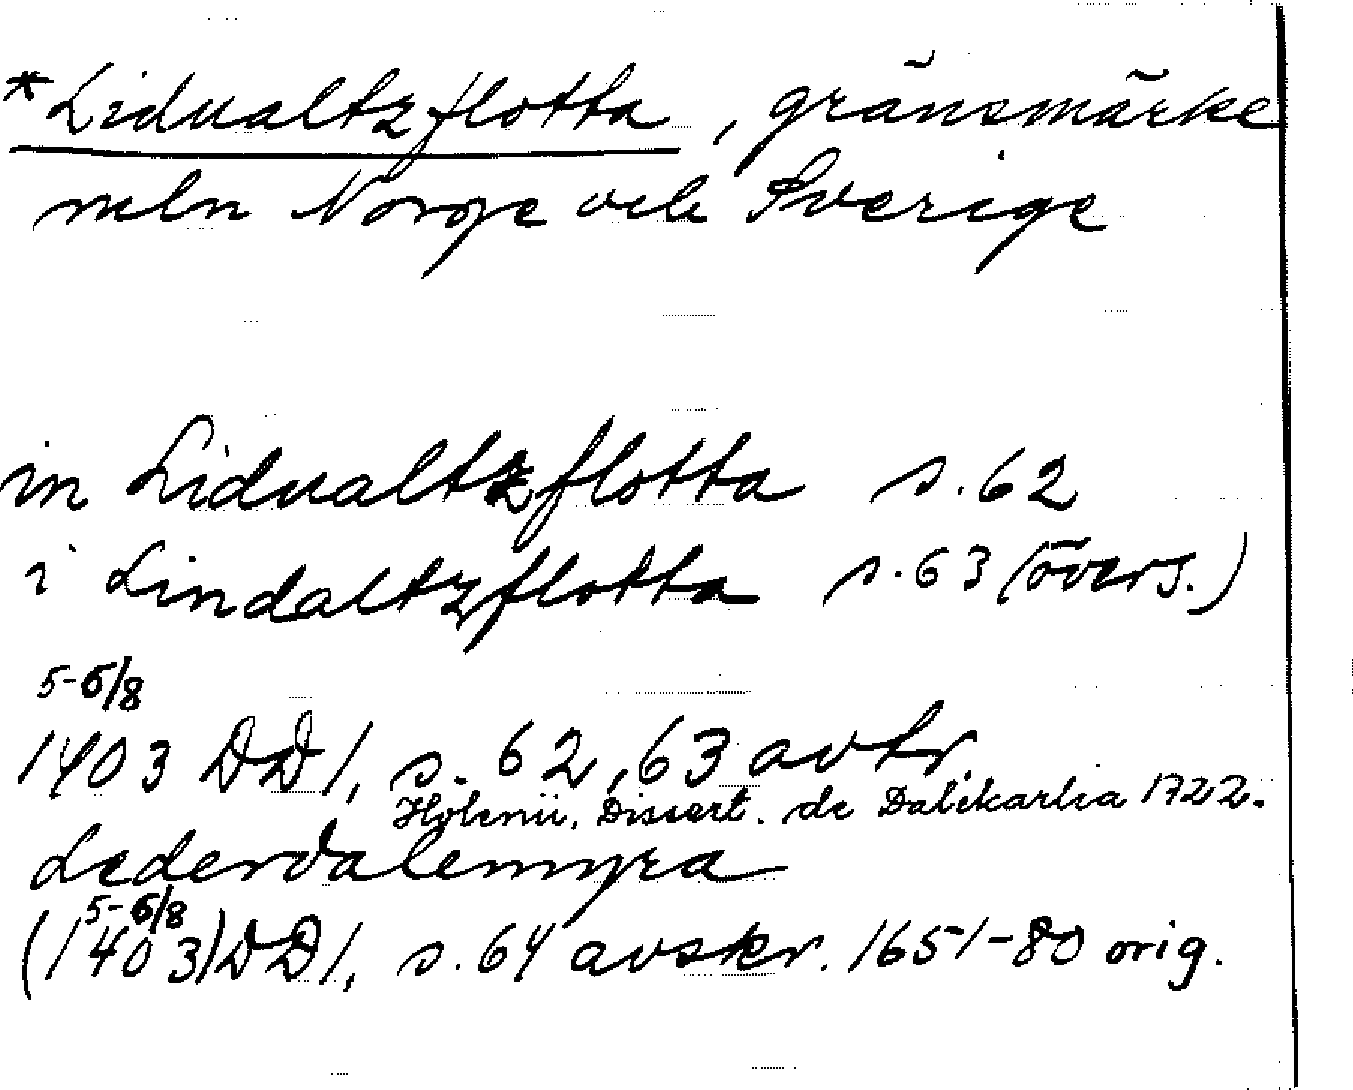 *Lidualtzflotta, gränsmärke
meln Norge och Sverige
in Lidualtzflotta s. 62
i Lindaltzflotta s. 63 (övers.)
5-6/8
1403 DD 1, s. 62, 63 avtr.
Holenii, Dissert. de Dalekarlia 1722.
Lederdalemyra
5-6/8
(1403) DD 1, s. 64 avskr. 1651-80 orig.